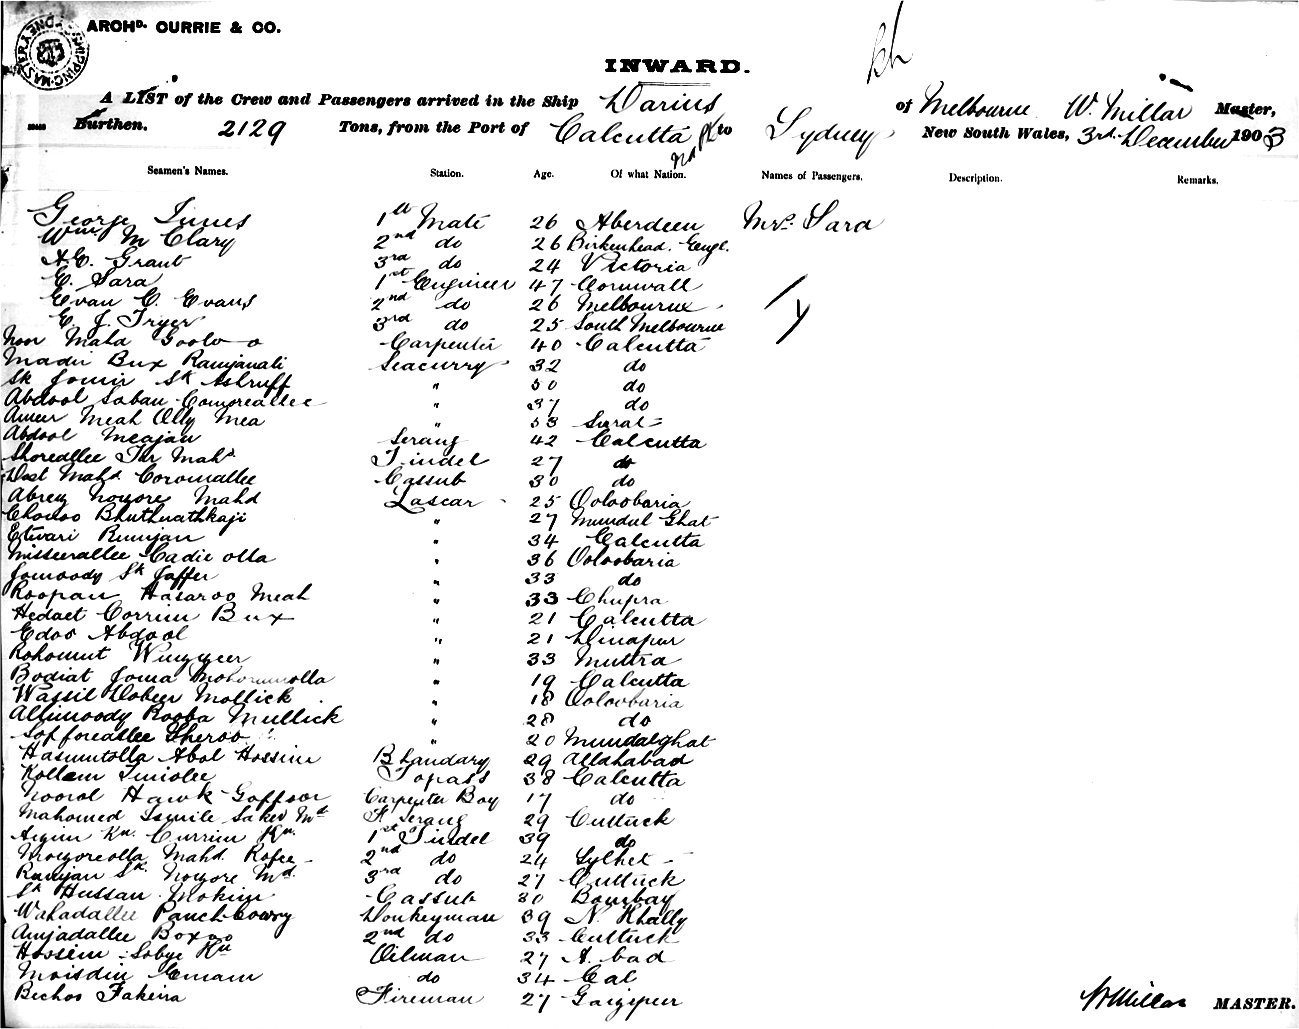 ARCHD. CURRIE & CO.
INWARD.
A LIST of the Crew and Passengers arrived in the Ship Darius of Melbourne W. Millar Master,
Burthen. 2129 Tons, from the Port of Calcutta to Sydney New South Wales, 3rd. December 1903
Seamen's Names. Station. Age. Of what Nation. Names of Passengers. Description. Remarks.
George Innes 1st Mate 26 Aberdeen Mrs. Sara
Wm. McClary 2nd do 26 Birkenhead. Engl.
A.E. Grant 3rd do 24 Victoria
E. Sara 1st Engineer 47 Cornwall
Evan C. Evans 2nd do 26 Melbourne
E. J. Fryer 3rd do 25 South Melbourne
Noor Mahd Carpenter 40 Calcutta
Madir Bux Ramjanali Seacurry 32 do
Sk Jomir Sk Ashruff " 50 do
Abdool Soban Comorallee " 37 do
Ameer Meah Olly Mea " 53 Surat
Abdool Meajan Serang 42 Calcutta
Shoredllee Mahd Tindel 27 do
Dost Mahd Coromallee Cassub 30 do
Nowore Mahd Lascar 25 Ooloobaria
Bhuthnathkaji " 27 Mundul Ghat
Etwari Rumjan " 34 Calcutta
Misserallee Cadir olla " 36 Ooloobaria
Jomoody Sk Jaffer " 33 do
Roopan Hasaroo Meah " 33 Chupra
Hedaet Corrim Bux " 21 Calcutta
Edoo Abdool " 21 Dinapur
Rohomut " 33 Muttra
Bodiat Joma " 19 Calcutta
Wassil Dober Mollick " 18 Ooloobaria
Allimoody Rooba Mullick " 28 do
Sheroo " 20 Mundalghat
Hasmutolla Abol Hossim Bhandary 29 Allahabad
Kollem Topass 38 Calcutta
Noorol Hawk Goffoor Carpenter Boy 17 do
Mahomed Ismile Saker Md F. Serang 29 Cuttuck
Azim Kn. Currim Kn. 1st Tindel 39 do
Mahd. Rofee 2nd do 24 Sylhet
Ramjan Sk. Nowore Md. 3rd do 27 Cuttuck
Sk Hussan Mokim Cassub 30 Bombay
Wahadallee Panchcowry Donkeyman 39 N. Khally
Amjadallee Boxoo 2nd do 33 Cuttuck
Hossein Sobye Kn Oilman 27 A. bad
Moisdin Emam do 34 Cal
Bechoo Fakeira Fireman 27 Gazipur
W Millar MASTER.